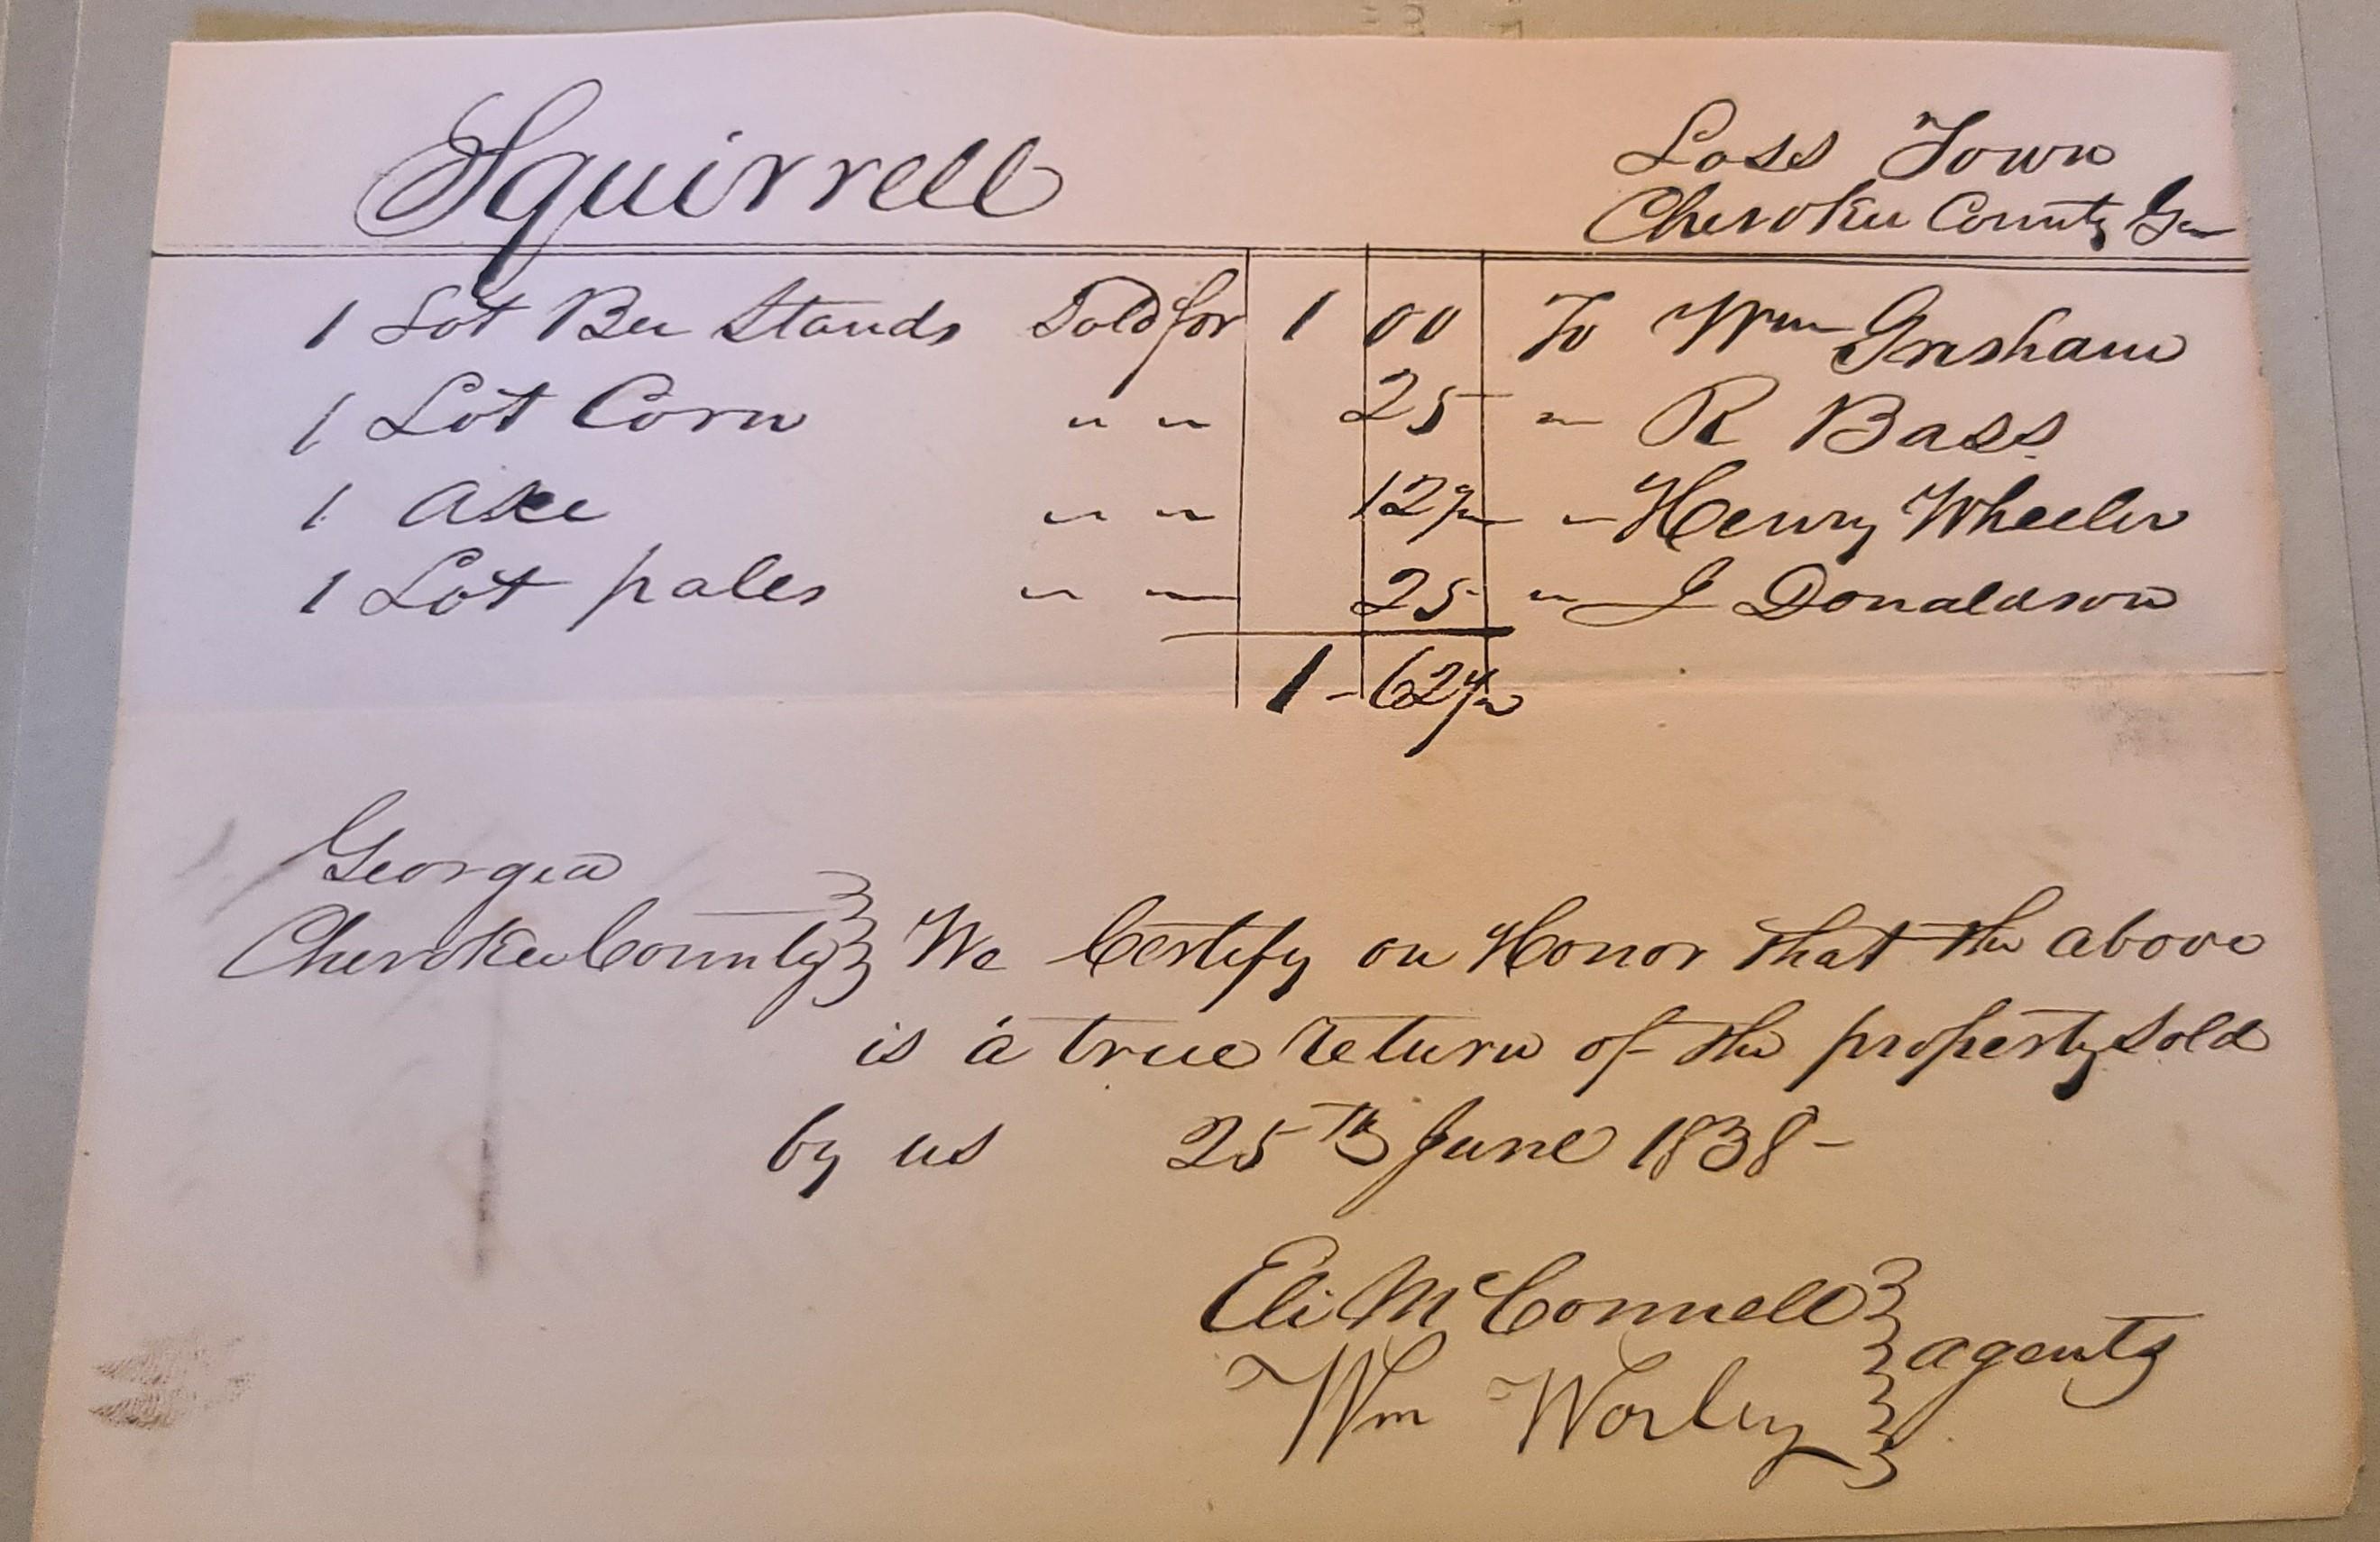 Squirrell
Loss Town
Cherokee County Ga
1 Lot Bee Stands Sold for 1 00 To Wm Gresham
1 Lot Corn " " 25 " R Bass
1 Axe " " 12½ " Henry Wheeler
1 Lot pales " " 25 " J Donaldson
1 - 62½
Georgia
Cherokee County } We Certify on Honor that the above
is a true return of the property sold
by us 25th June 1838 -
Eli McConnell } agents
Wm Worley